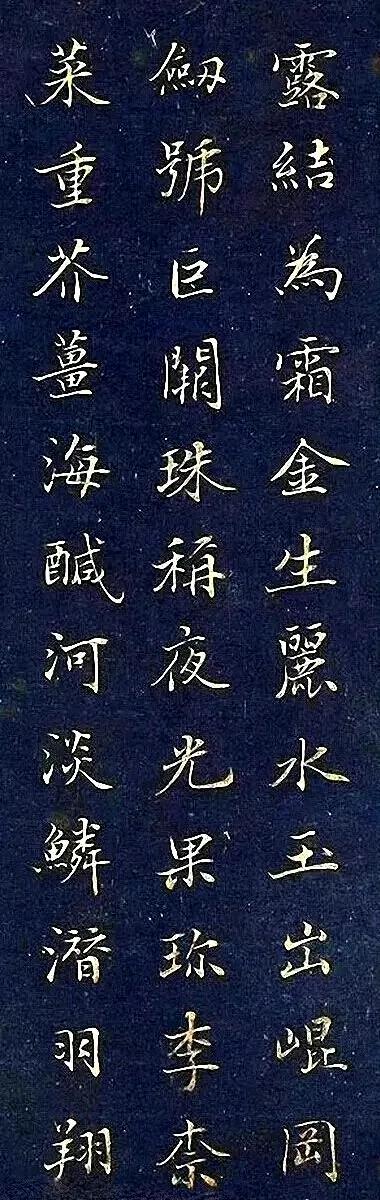 露結為霜金生麗水玉出崐岡
劒號巨闕珠稱夜光果珎李柰
菜重芥薑海醎河淡鱗潛羽翔